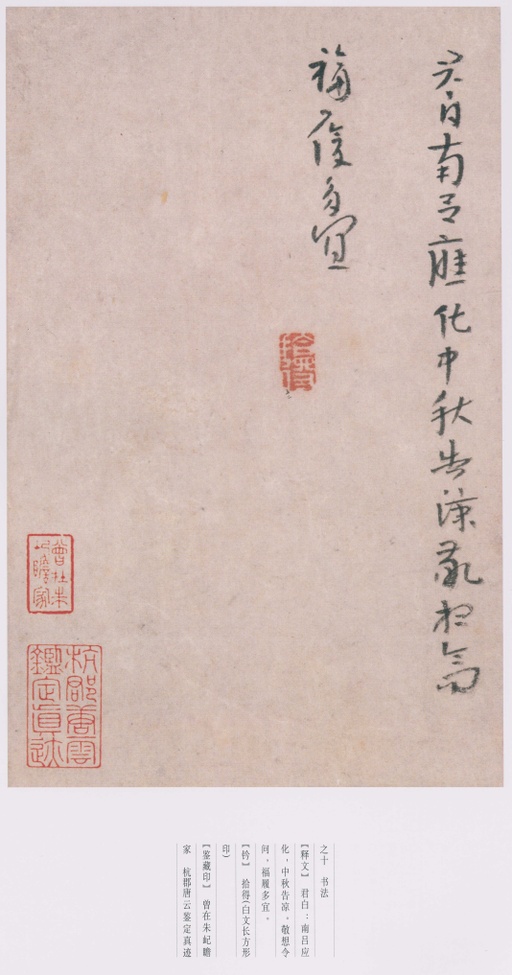 君白南吕應化中秋告涼敬想令问
福履多宜
拾得
曾在朱屺瞻家
杭郡唐雲鑑定真迹
之十 书法
【释文】 君白：南吕应
化，中秋告凉。敬想令
问，福履多宜。
【钤】 拾得(白文长方形
印)
【鉴藏印】 曾在朱屺瞻
家 杭郡唐云鉴定真迹